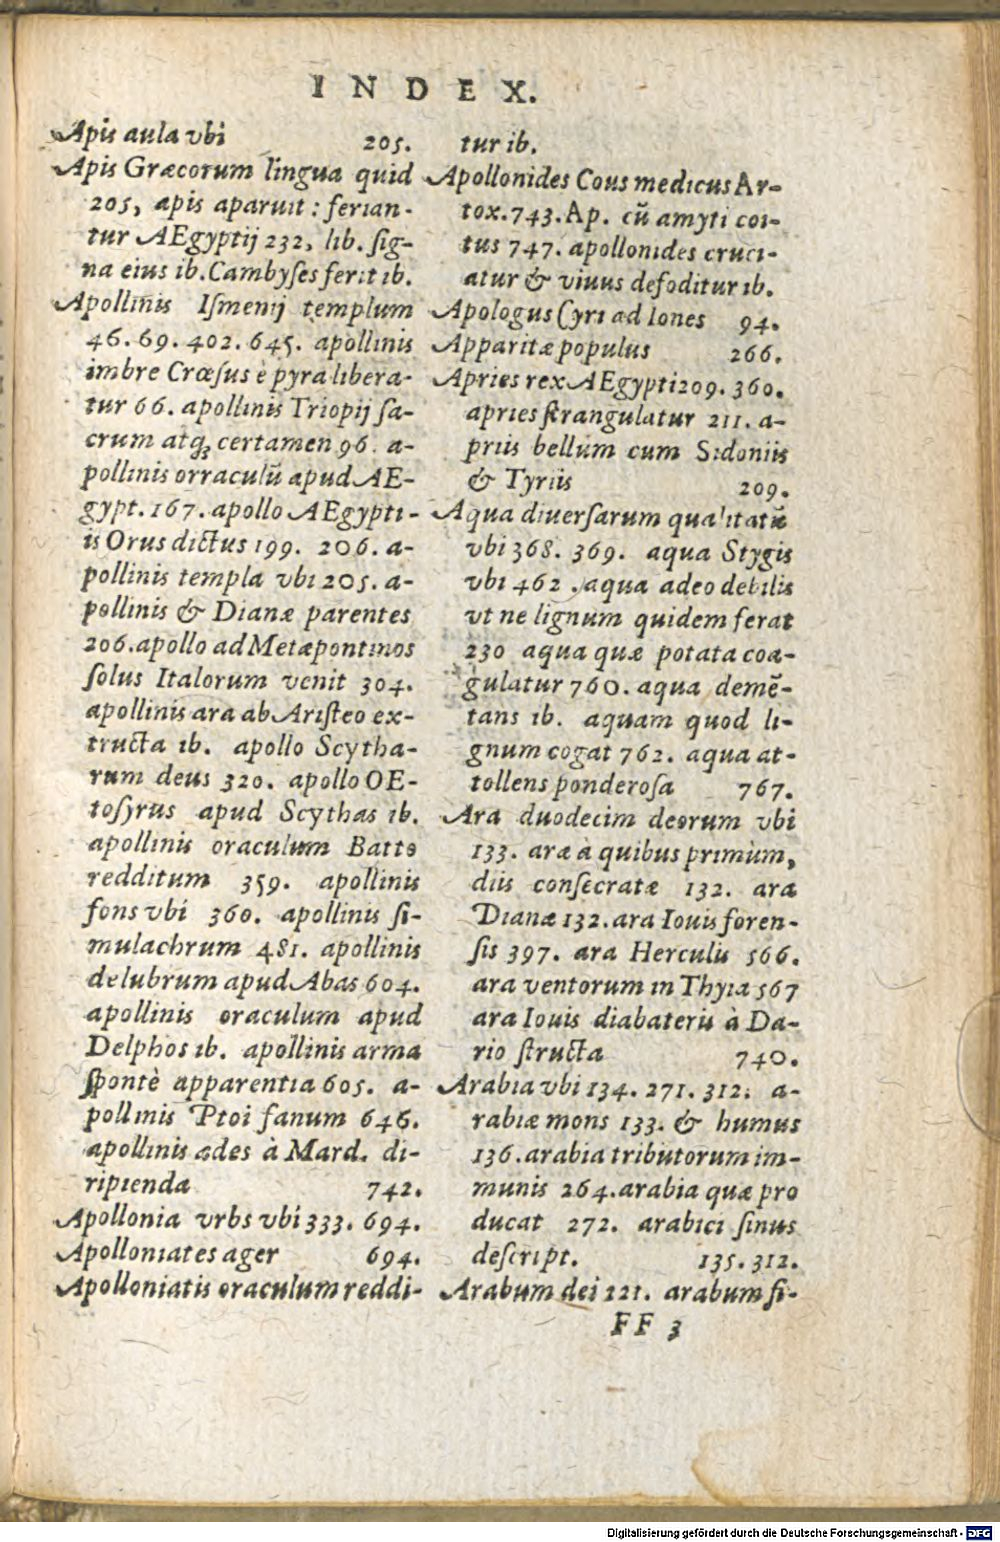 INDEX.
Apis aula vbi 205.
Apis Græcorum lingua quid
205, apis aparuit: ferian-
tur AEgyptij 232, lib. sig-
na eius ib. Cambyses ferit ib.
Apollinis Ismenij templum
46. 69. 402. 645. apollinis
imbre Crœsus è pyra libera-
tur 66. apollinis Triopij sa-
crum atq; certamen 96. a-
pollinis orraculū apud AE-
gypt. 167. apollo AEgypti-
is Orus dictus 199. 206. a-
pollinis templa vbi 205. a-
pollinis & Dianæ parentes
206. apollo ad Metapontinos
solus Italorum venit 304.
apollinis ara ab Aristeo ex-
tructa ib. apollo Scytha-
rum deus 320. apollo OE-
tosyrus apud Scythas ib.
apollinis oraculum Batto
redditum 359. apollinis
fons vbi 360. apollinis si-
mulachrum 481. apollinis
delubrum apud Abas 604.
apollinis oraculum apud
Delphos ib. apollinis arma
spontè apparentia 605. a-
pollinis Ptoi fanum 646.
apollinis ædes à Mard. di-
ripienda 742.
Apollonia vrbs vbi 333. 694.
Apolloniates ager 694.
Apolloniatis oraculum reddi-
tur ib.
Apollonides Cous medicus Ar-
tox. 743. Ap. cū amyti coi-
tus 747. apollonides cruci-
atur & viuus defoditur ib.
Apologus Cyri ad Iones 94.
Apparitæ populus 266.
Apries rex AEgypti 209. 360.
apries strangulatur 211. a-
priis bellum cum Sidoniis
& Tyriis 209.
Aqua diuersarum qualitatū
vbi 368. 369. aqua Stygis
vbi 462. aqua adeo debilis
vt ne lignum quidem ferat
230 aqua quæ potata coa-
gulatur 760. aqua demē-
tans ib. aquam quod li-
gnum cogat 762. aqua at-
tollens ponderosa 767.
Ara duodecim deorum vbi
133. aræ a quibus primùm,
diis consecratæ 132. ara
Dianæ 132. ara Iouis foren-
sis 397. ara Herculis 566.
ara ventorum in Thyia 567
ara Iouis diabateris à Da-
rio structa 740.
Arabia vbi 134. 271. 312. a-
rabiæ mons 133. & humus
136. arabia tributorum im-
munis 264. arabia quæ pro
ducat 272. arabici sinus
descript. 135. 312.
Arabum dei 221. arabum fi-
FF 3
Digitalisierung gefördert durch die Deutsche Forschungsgemeinschaft - DFG